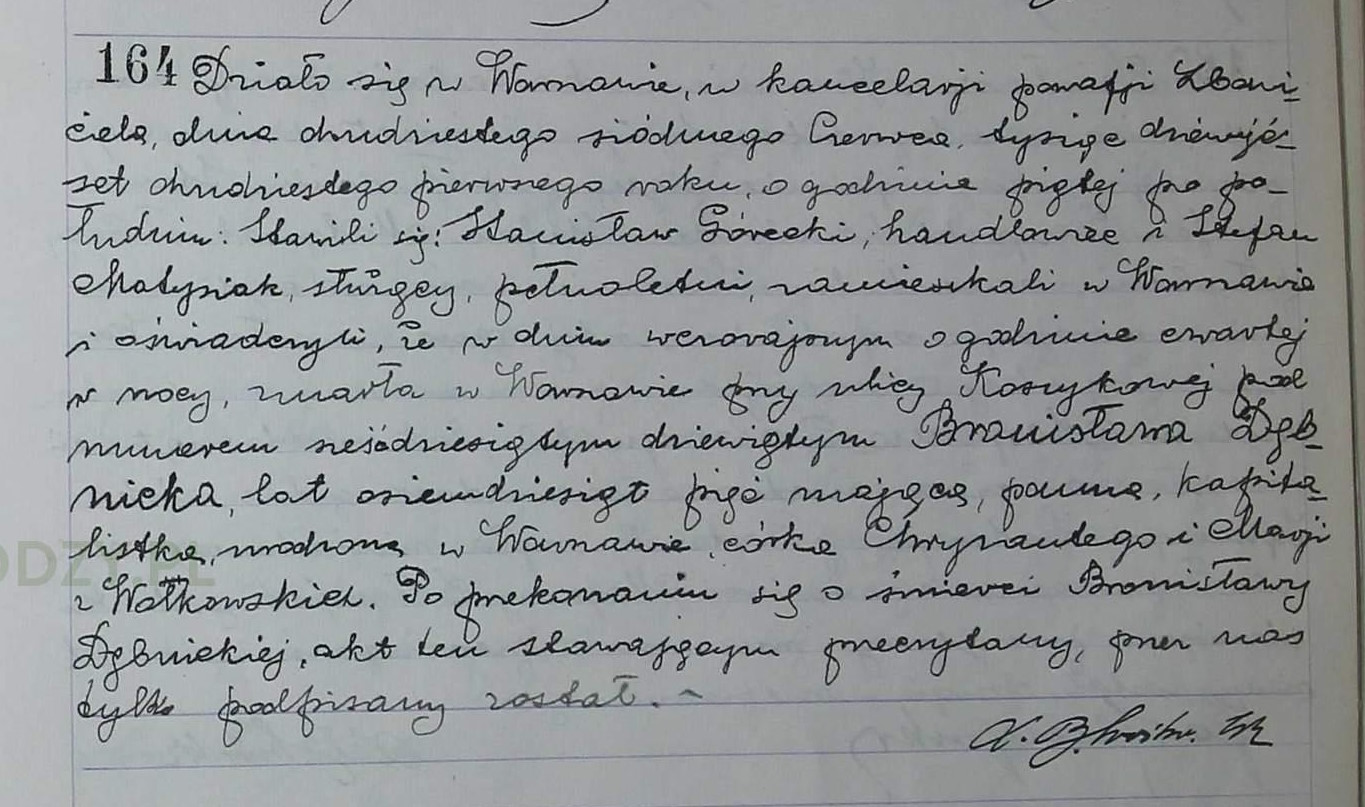 164 Działo się w Warszawie, w kancelarji parafji Zbawi-
ciela, dnia dwudziestego siódmego Czerwca, tysiąc dziewięć-
set dwudziestego pierwszego roku, o godzinie piątej po po-
łudniu: Stawili się: Stanisław Górecki, handlowiec i Stefan
Matysiak, służący, pełnoletni, zamieszkali w Warszawie
i oświadczyli, że w dniu wczorajszym o godzinie czwartej
w nocy, zmarła w Warszawie przy ulicy Koszykowej pod
numerem sześćdziesiątym dziewiątym Bronisława Dęb-
nicka, lat osiemdziesiąt pięć mająca, panna, kapita-
listka, urodzona w Warszawie, córka Chryzantego i Marji
z Wołkowskich. Po przekonaniu się o śmierci Bronisławy
Dębnickiej, akt ten stawającym przeczytany, przez nas
tylko podpisany został.
ODZY.PL